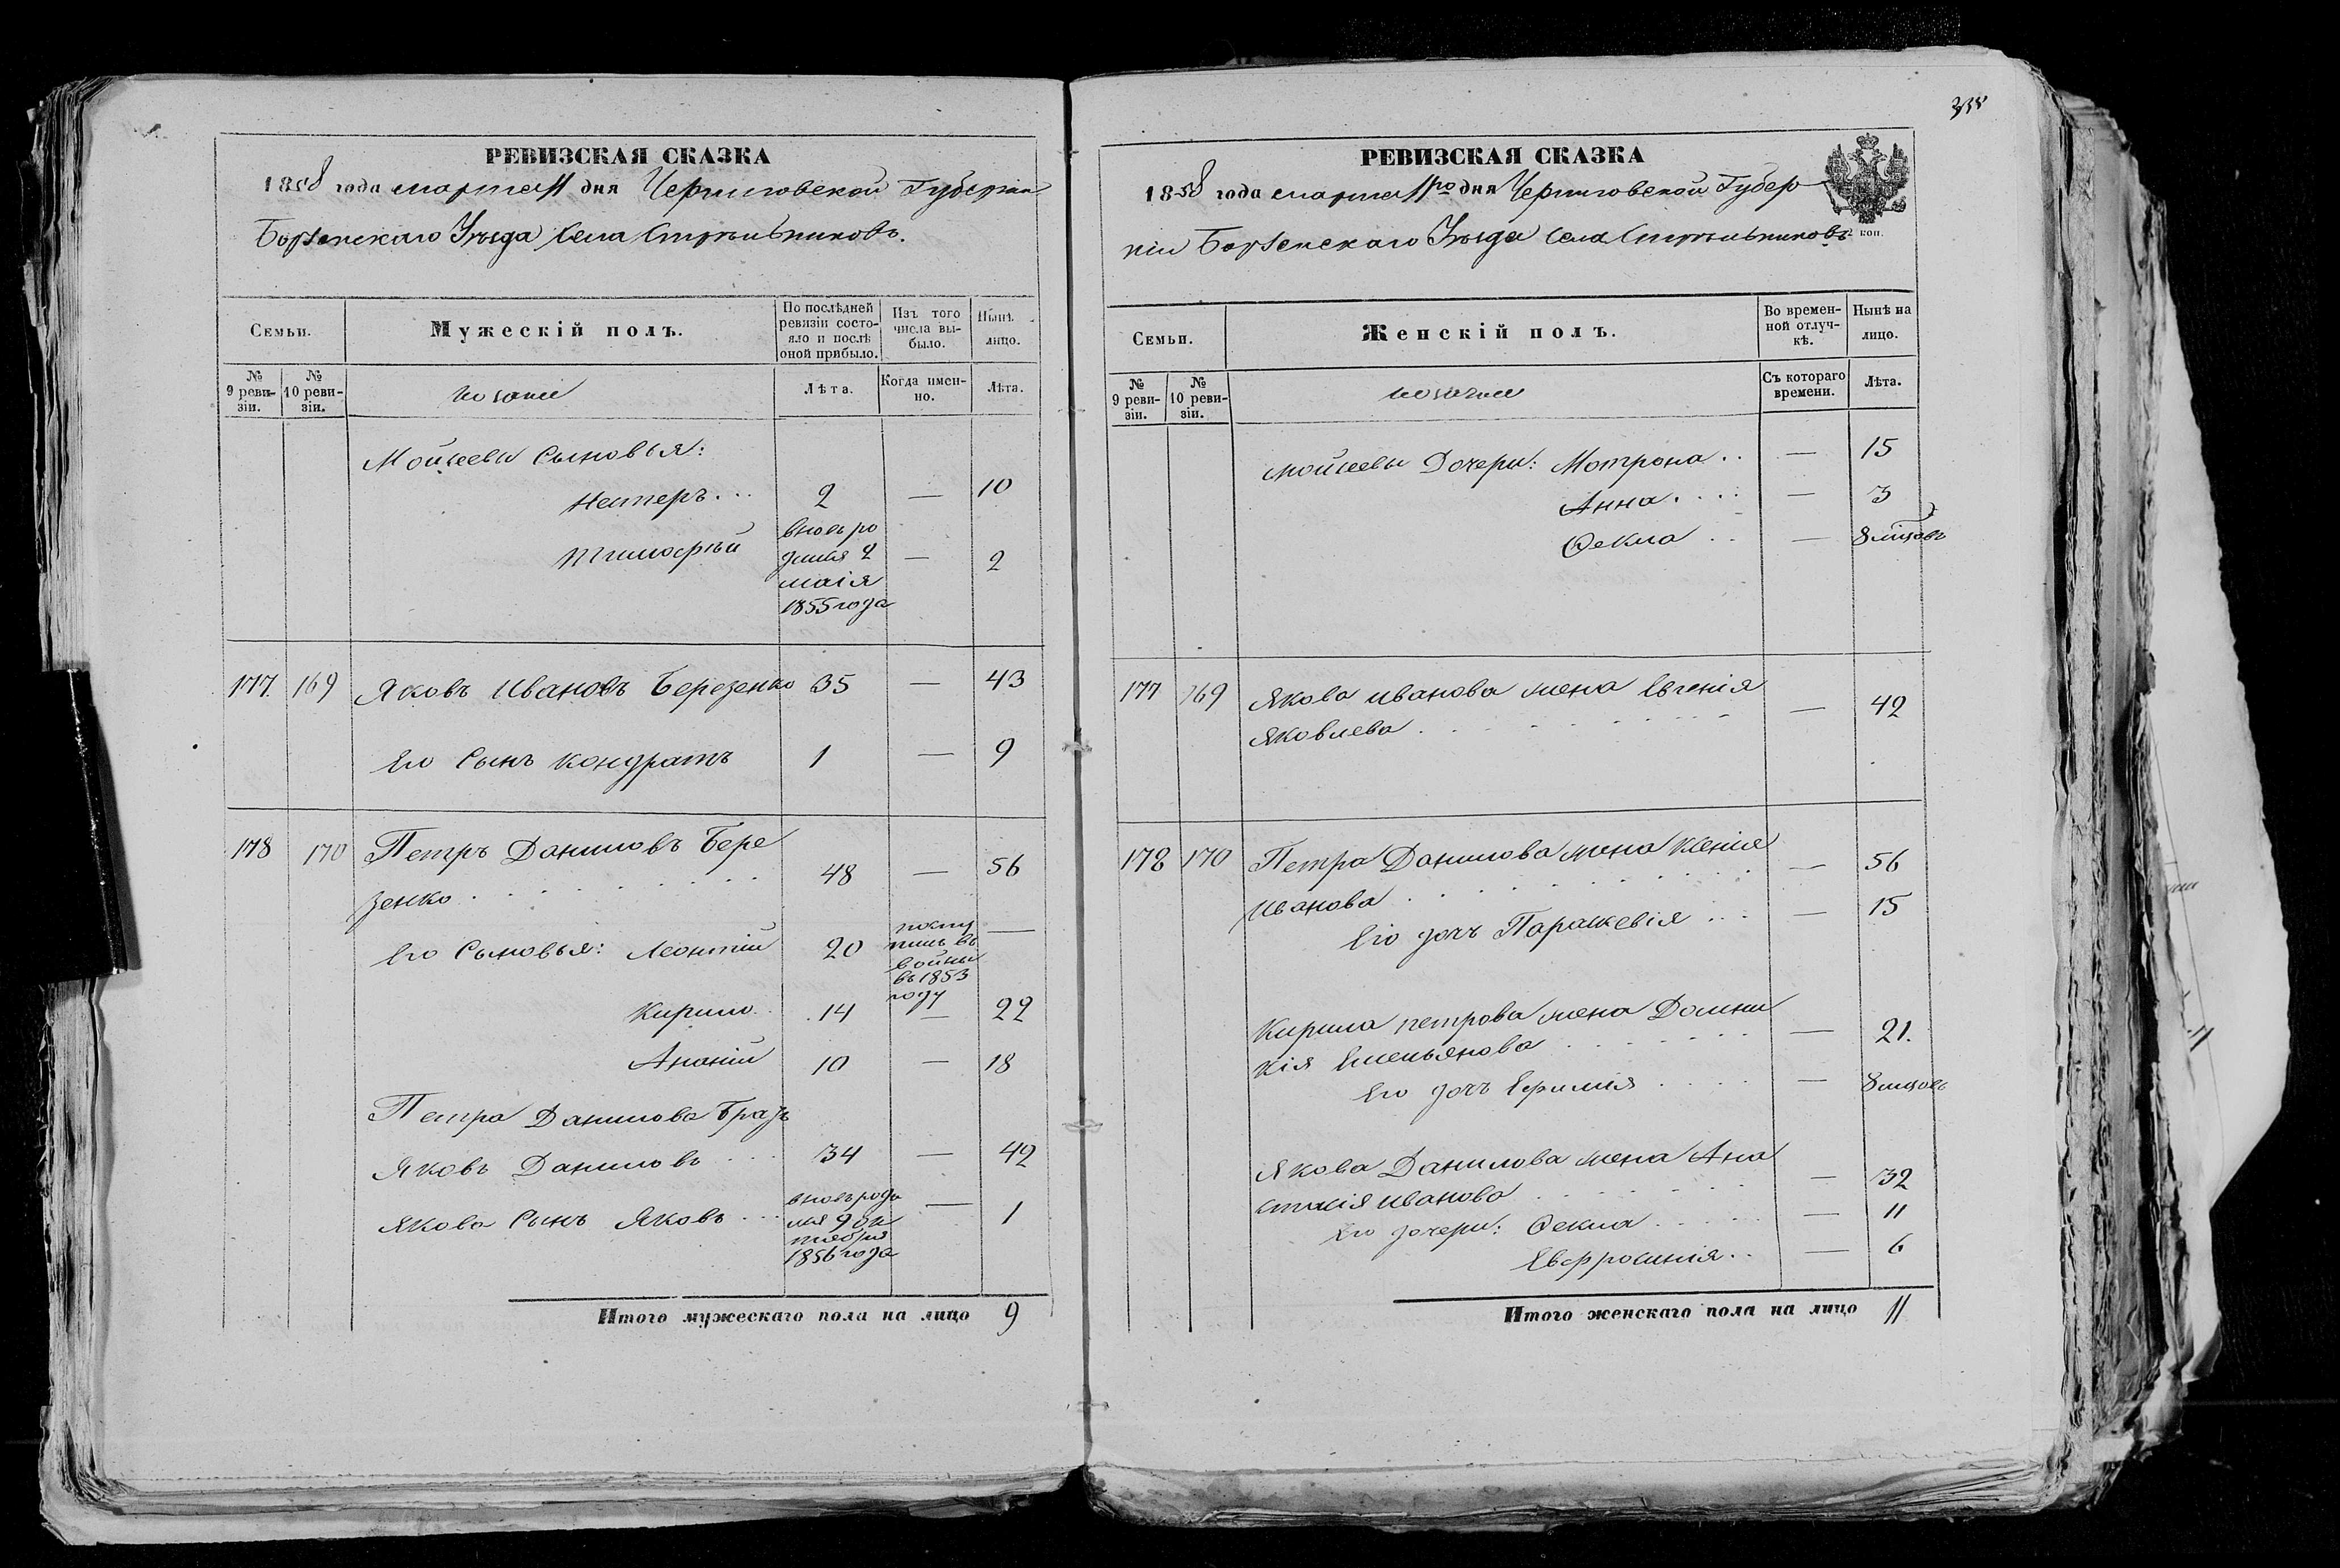 РЕВИЗСКАЯ СКАЗКА
1858 года марта 11 дня Черниговской Губернии
Борзенскаго Уѣзда Села Стрѣльниковъ.
Семьи.
Мужескій полъ.
По послѣдней ревизіи состояло и послѣ оной прибыло.
Изъ того числа выбыло.
Нынѣ лицо.
№ 9 ревизіи.
№ 10 ревизіи.
козаки
Лѣта.
Когда именно.
Лѣта.
Мойсеевы Сыновья:
Нестеръ... 2 — 10
Тимофѣй вновь ро
дился 2 — 2
маія
1855 года
177. 169 Яковъ Ивановъ Березенко 35 — 43
Его Сынъ Кондратъ 1 — 9
178 170 Петръ Даниловъ Бере
зенко 48 — 56
Его Сыновья: Леонтій 20 посту
въ
въ 1853
году —
Кирило 14 — 22
Ананій 10 — 18
Петра Данилова Братъ
Яковъ Даниловъ ... 34 — 42
Якова Сынъ Яковъ ... вновь роди — 1
лся 9 ок
тября
1856 года
Итого мужескаго пола на лицо 9
РЕВИЗСКАЯ СКАЗКА
1858 года марта 11го дня Черниговской Губер
ніи Борзенскаго Уѣзда Села Стрѣльниковъ
коп.
Семьи.
Женскій полъ.
Во временной отлучкѣ.
Нынѣ на лицо.
№ 9 ревизіи.
№ 10 ревизіи.
козачки
Съ котораго времени.
Лѣта.
Мойсеевы Дочери: Мотрона .. — 15
Анна .... — 3
Ѳекла .. — 8 мѣсяцовъ
177 169 Якова Иванова жена Евгенія
Яковлева — 42
178 170 Петра Данилова жена Ксенія
Иванова — 56
Его дочь Параскевія ... — 15
Кирила Петрова жена Домни
кія Емельянова — 21.
Его дочь Ефимія — 8 мѣсяцовъ
Якова Данилова жена Ана
стасія Иванова — 32
Его дочери: Ѳекла — 11
Евфросинія .. — 6
Итого женскаго пола на лицо 11